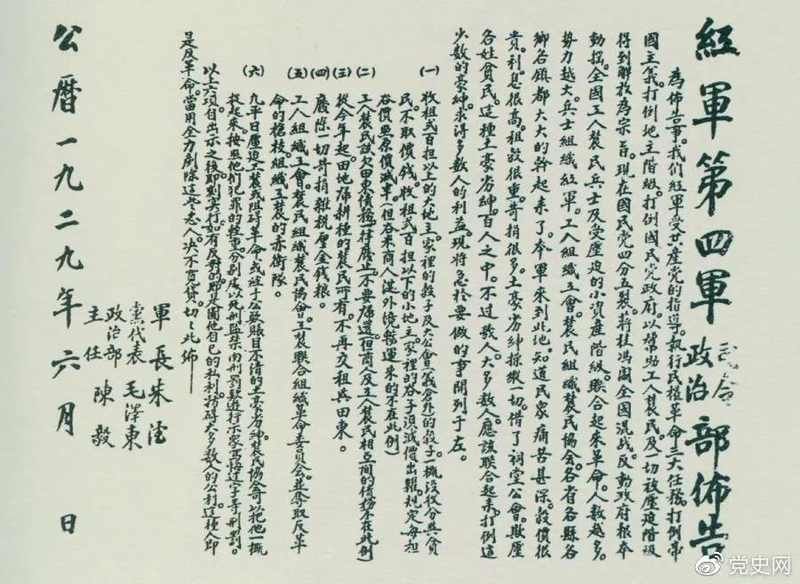 紅軍第四軍司令政治部佈告
為佈告事。我們紅軍受共產党的指導。執行民權革命三大任務。打倒帝
國主義。打倒地主階級。打倒國民党政府。以幫助工人農民及一切被壓迫階級
得到解放為宗旨。現在國民党四分五裂。蔣桂馮閻全國混战。反動政府根本
動搖。全國工人農民兵士及受壓迫的小資產階級。联合起來革命。人數越多。
勢力越大。兵士組織紅軍。工人組織工會。農民組織農民協會。各省各縣各
鄉各鎮都大大的幹起來了。本軍來到此地。知道民衆痛苦甚深。穀價很
貴。利息很高。租穀很重。苛捐很多。土豪劣紳操縱一切。借了祠堂公會。欺壓
各姓貧民。這種土豪劣紳。百人之中。不过数人。大多数人應該联合起來。打倒這
少数的豪紳。求得多数人的利益。現將急於要做的事開列于左。
(一) 收租弍百担以上的大地主。家裡的穀子及大公會(義倉外)的穀子。一概没收分與貧
民。不取價錢。收租弍百担以下的小地主。家裡的谷子須減價出糶。規定每担
谷價照原價減半(但各米商人從外境轉運來的不在此例)
(二) 工人農民該欠田東債務。一律廢止。不要歸還(但商人及工人農民相互间的債務不在此例)
(三) 從今年起。田地歸耕種的農民所有。不再交租與田東。
(四) 廢除一切苛捐雜税厘金錢粮。
(五) 工人組織工會。農民組織農民協會。工農联合組織革命委員会。並奪取反革
命的槍枝。組織工農的赤衛隊。
(六) 凡平日壓迫工農或阻碍革命或社子公款賬目不清的土豪劣紳。農民協會可以把他一概
捉起來。按照他們犯罪的輕重。分別處以
以上六項。自出示之後。即刻实行。如有反對的。即是圖他自己的私利。妨碍大多数人的公利。這種人即
是反革命。當用全力剷除這些恶人。决不寬贷。切切此佈
軍長朱德
党代表毛澤東
政治部主任陳毅
公曆一九二九年六月 日
党史网